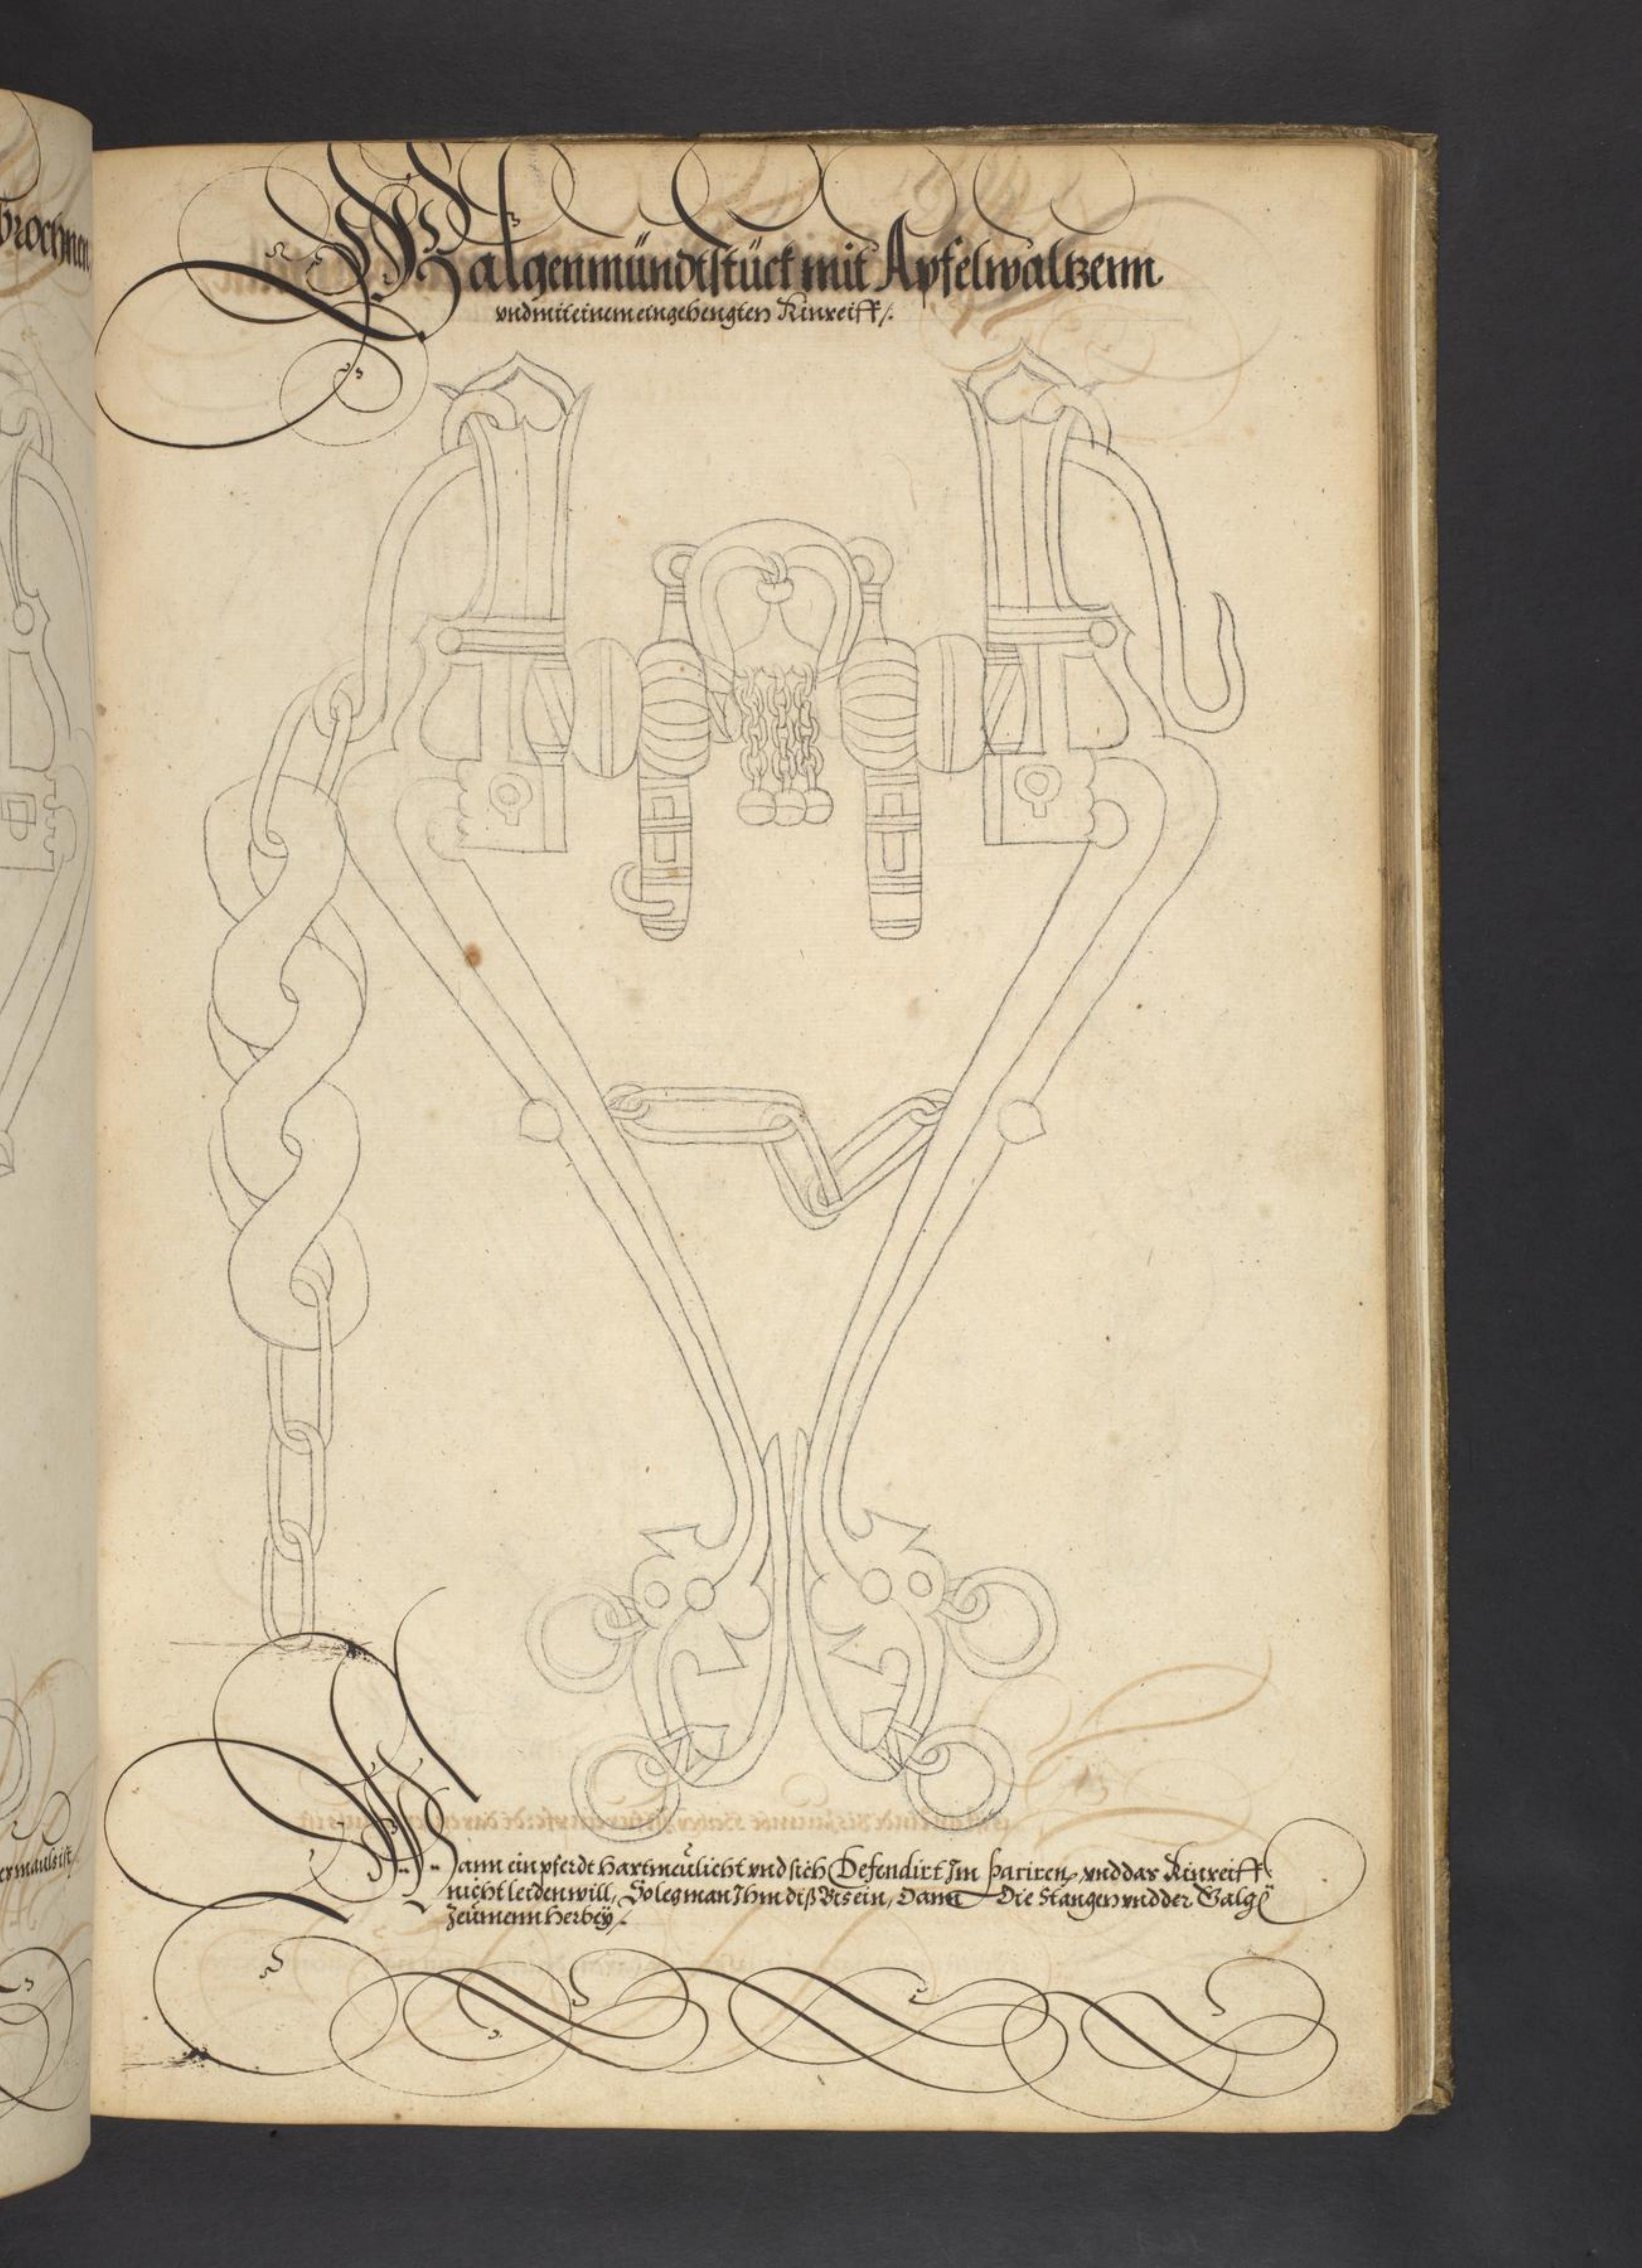 brochnen
Galgenmündtstück mit Apfelwaltzenn
vnd mit einem eingehengten Kinreiff /.
er mauls ist /
Wann ein pferdt hartmeülicht vnd sich Defendirt Im pariren, vnd das Kinreiff
nicht leiden will, So leg man Ihm diß Bis ein, Dann Die Stangen vnd der Galg
Zeümenn herbeÿ /.